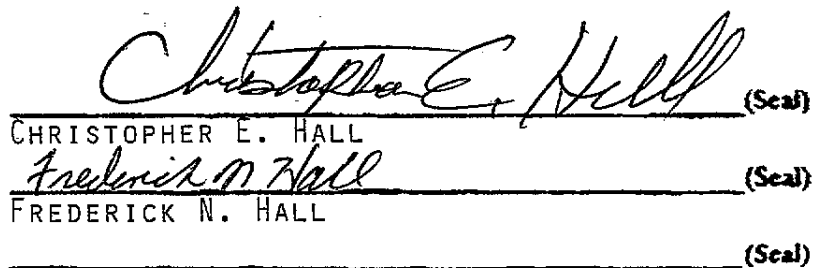 Christopher E. Hall (Seal)
CHRISTOPHER E. HALL
Frederick N Hall (Seal)
FREDERICK N. HALL
(Seal)